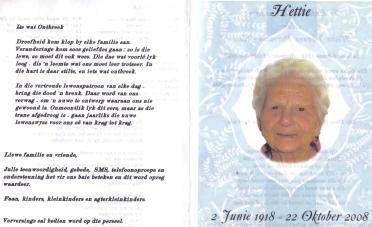 Iets wat Ontbreek
Droefheid kom klop by elke familie aan.
Veranderinge kom soos geliefdes gaan : so is die
lewe, so moet dit ook wees. Die dae wat voorlê lyk
leeg - dis 'n leemte wat ons moet leer trotseer. In
die hart is daar stilte, en iets wat ontbreek.
In die vertroude lewenspatroon van elke dag -
bring die dood 'n breuk. Daar word van ons
verwag - om 'n nuwe te ontwerp waaraan ons nie
gewoond is. Onmoontlik lyk dit eers, maar as die
trane afgedroog is - gaan jaarliks die nuwe
lewenswyse voor ons oë van krag tot krag.
Liewe familie en vriende,
Julle teenwoordigheid, gebede, SMS, telefoonoproepe en
ondersteuning het vir ons baie beteken en dit word opreg
waardeer.
Faan, kinders, kleinkinders en agterkleinkinders.
Verversings sal bedien word op die perseel.
Hettie
2 Junie 1918 - 22 Oktober 2008